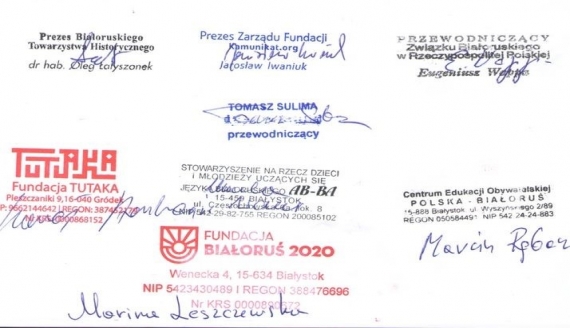 Prezes Białoruskiego
Towarzystwa Historycznego
dr hab. Oleg Łatyszonek
Prezes Zarządu Fundacji
Kamunikat.org
Jarosław Iwaniuk
PRZEWODNICZĄCY
Związku Białoruskiego
w Rzeczypospolitej Polskiej
Eugeniusz
TOMASZ SULIMA
przewodniczący
TUTAKA
Fundacja TUTAKA
Pieszczaniki 9, 16-040 Gródek
STOWARZYSZENIE NA RZECZ DZIECI
I MŁODZIEŻY UCZĄCYCH SIĘ
JĘZYKA BIAŁORUSKIEGO AB-BA
15-459 BIAŁYSTOK
REGON 200085102
Centrum Edukacji Obywatelskiej
POLSKA - BIAŁORUŚ
15-888 Białystok ul. Wyszyńskiego 2/89
REGON 050584491 NIP 542 24-24-883
Marcin Rębacz
FUNDACJA
BIAŁORUŚ 2020
Wenecka 4, 15-634 Białystok
NIP 5423430489 I REGON 388476696
Marina Leszczewska